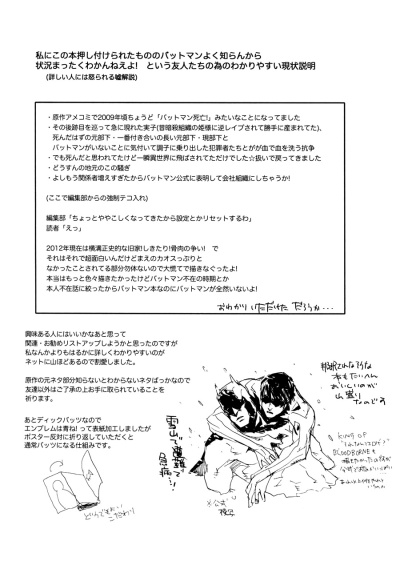 私にこの本押し付けられたもののバットマンよく知らんから
状況まったくわかんねえよ！　という友人たちの為のわかりやすい現状説明
(詳しい人には怒られる嘘解説)
・原作アメコミで2009年頃ちょうど「バットマン死亡!」みたいなことになってました
・その後跡目を巡って急に現れた実子(昔暗殺組織の姫様に逆レイプされて勝手に産まれてた)、
死んだはずの元部下・一番付き合いの長い元部下・現部下と
バットマンがいないことに気付いて調子に乗り出した犯罪者たちとがが血で血を洗う抗争
・でも死んだと思われてたけど一瞬異世界に飛ばされてただけでした☆扱いで戻ってきました
・どうすんの地元のこの騒ぎ
・よしもう関係者増えすぎたからバットマン公式に表明して会社組織にしちゃうか!
(ここで編集部からの強制テコ入れ)
編集部「ちょっとややこしくなってきたから設定とかリセットするわ」
読者「えっ」
2012年現在は横溝正史的な旧家!しきたり!骨肉の争い!　で
それはそれで超面白いんだけどまえのカオスっぷりと
なかったことされてる部分勿体ないので大慌てで描きなぐったよ!
本当はもっと色々描きたかったけどバットマン不在の時期とか
本人不在話に絞ったからバットマン本なのにバットマンが全然いないよ!
おわかりいただけただろうか…
興味ある人にはいいかなあと思って
関連・お勧めリストアップしようかと思ったのですが
私なんかよりもはるかに詳しくわかりやすいのが
ネットに山ほどあるので割愛しました。
原作の元ネタ部分知らないとわからないネタばっかなので
友達以外はご了承の上お手に取られていることを
祈ります。
あとディックバッツなので
エンブレムは青ね! って表紙加工しましたが
ポスター反対に折り返していただくと
通常バッツになる仕組みです。
雪山で遭難って
※公式
KING OF
BLOODBORNEも